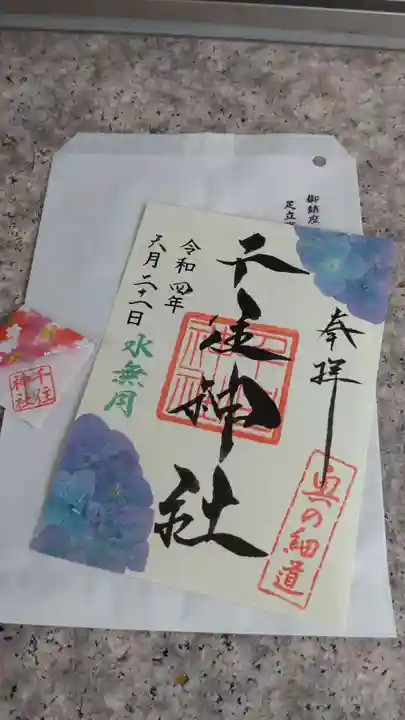 奉拝
奥の細道
千住神社
千住神社
令和四年
六月二十一日
水無月
御鎮座
足立
千住
神社